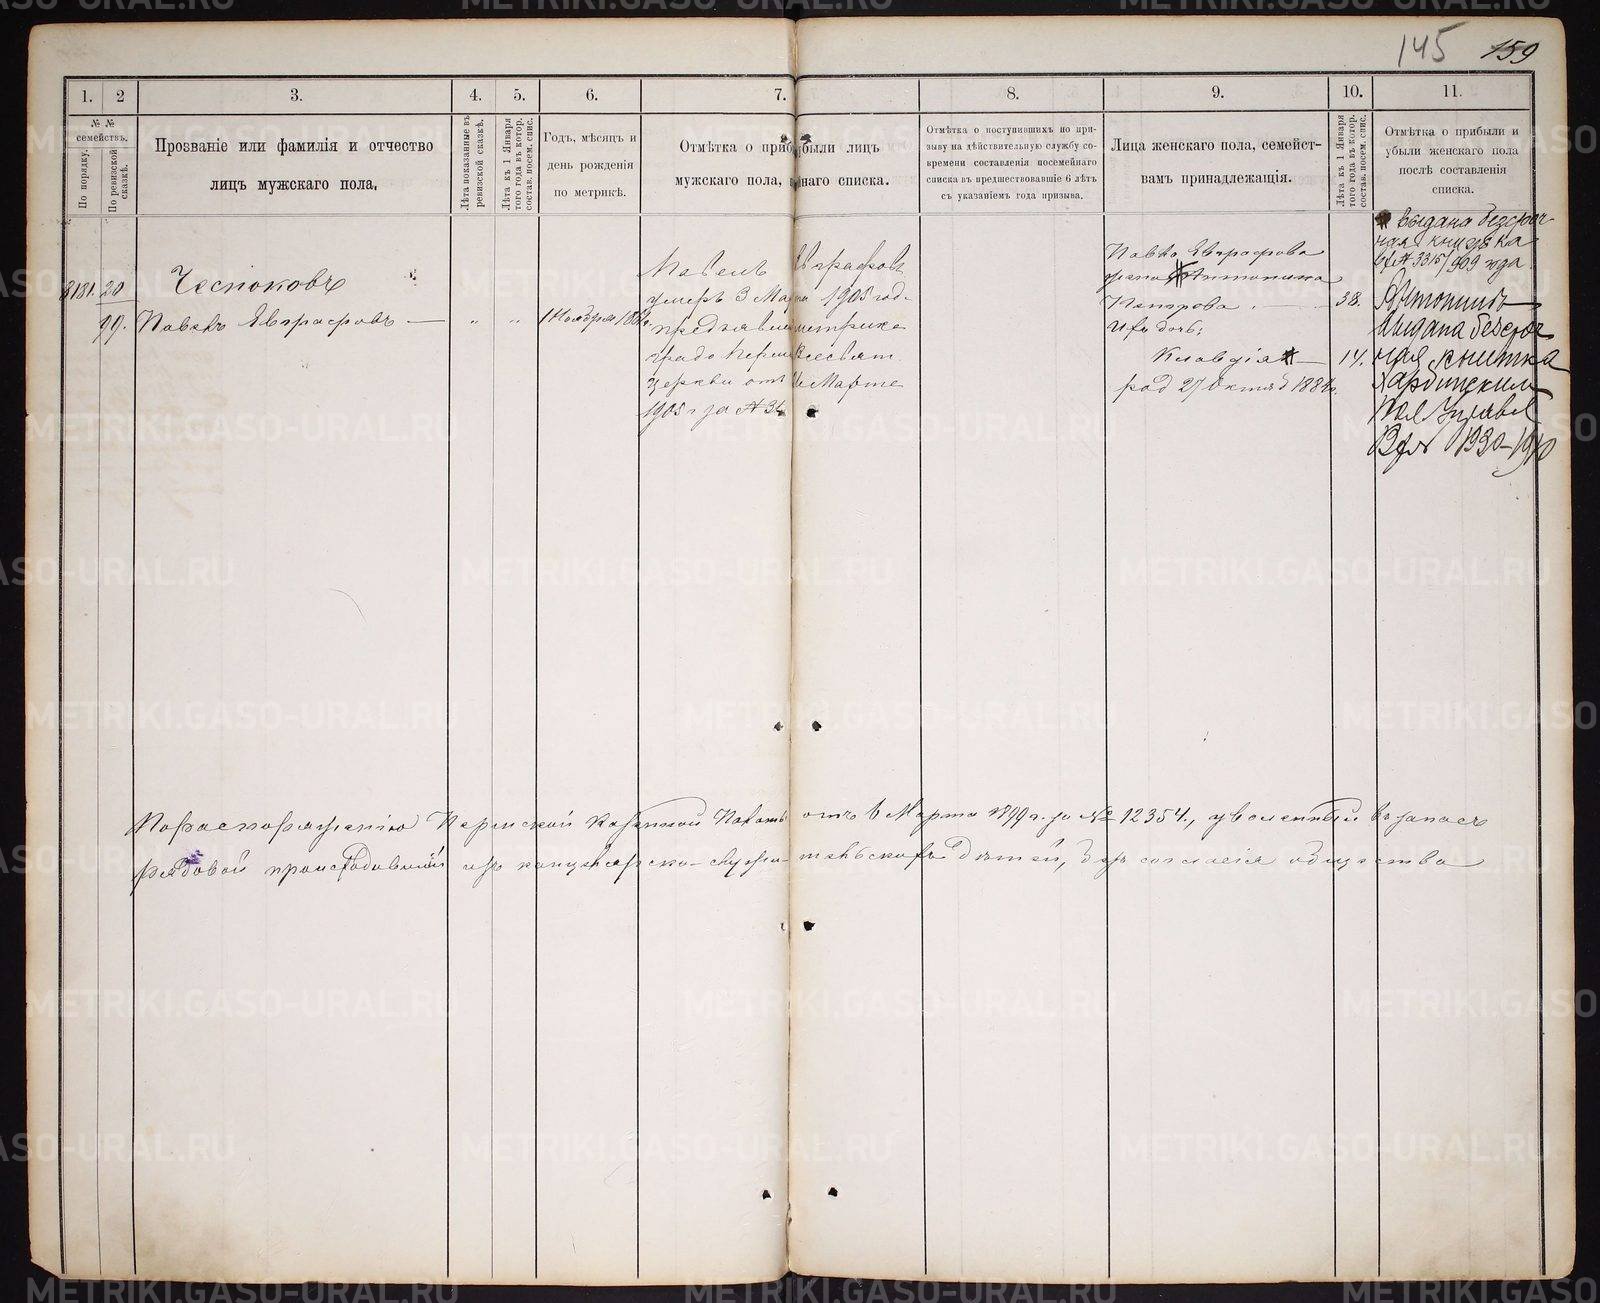 145 159
1. 2 3. 4. 5. 6. 7. 8. 9. 10. 11.
№ №
семействъ.
По порядку.
По ревизской
сказкѣ.
Прозваніе или фамилія и отчество
лицъ мужскаго пола,
Лѣта показанные въ
ревизской сказкѣ.
Лѣта къ 1 Января
того года въ котор.
состав. посем. спис.
Годъ, мѣсяцъ и
день рожденія
по метрикѣ.
Отмѣтка о приб были лицъ
мужскаго пола, наго списка.
Отмѣтка о поступившихъ по при-
зыву на дѣйствительную службу со-
времени составленія посемейнаго
списка въ предшествовавшіе 6 лѣтъ
съ указаніемъ года призыва.
Лица женскаго пола, семейст-
вамъ принадлежащія.
Лѣта къ 1 Января
того года въ котор.
состав. посем. спис.
Отмѣтка о прибыли и
убыли женскаго пола
послѣ составленія
списка.
8181. 20
99.
Чесноковъ
Павелъ Евграфовъ — " "
1 Ноября
Павелъ Евграфовъ
умеръ 3 Марта 1905 год.
метрика
града Перми
церкви отъ Марта
1905 г за №
Павла Евграфова
жена Антонина
Петрова 38.
Ихъ дочь:
Клавдія — 14.
род 27 Октяб 188
выдана безсроч-
ная книжка
№ 3315/909 года
Антонинѣ
Выдана безсроч
ная книжка
Харбинским
Пол Управл
1930–1910
По распоряженію Пермской Казенной Палаты отъ 6 Марта 1899 г. за № 12354., уволенный въ запасъ
рядовой происходившій изъ канцелярско-служи-тельскихъ дѣтей, безъ согласія общества
METRIKI.GASO-URAL.RU